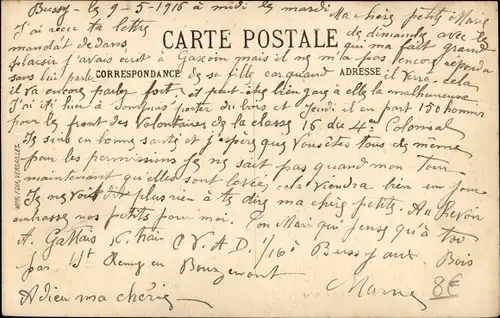 Bussy - le 9-5-1916 à midi le mardi
Ma chère petite Marie
J'ai reçu ta lettre de dimanche avec le
mandat de dans qui ma fait grand
CARTE POSTALE
plaisir j'avais écrit à Gascoin mais il ne m'a pas encore répondu
sans lui parler de sa fille car quand il verra cela
CORRESPONDANCE
ADRESSE
il va encore parler fort et peut-être bien gare à elle la malheureuse
J'ai été hier à Sompuis porter du bois et Jeudi il en part 150 hommes
pour le front des volontaires de la classe 16 du 4e Colonial
Je suis en bonne santé et j'espère que Vous êtes tous de même
pour les permissions je ne sait pas quand mon tour
maintenant qu'elles sont levée, cela viendra bien un jour
Je ne voit plus rien à te dire ma chère petite. Au revoir
embrasse nos petits pour moi. Ton Mari qui pense qu'à toi
A. Gallais C.V.A.D. 1/16e Bussy aux Bois
par St Remy en Bouzemont
Marne
Adieu ma chérie
8€
IMP. VERSAILLES